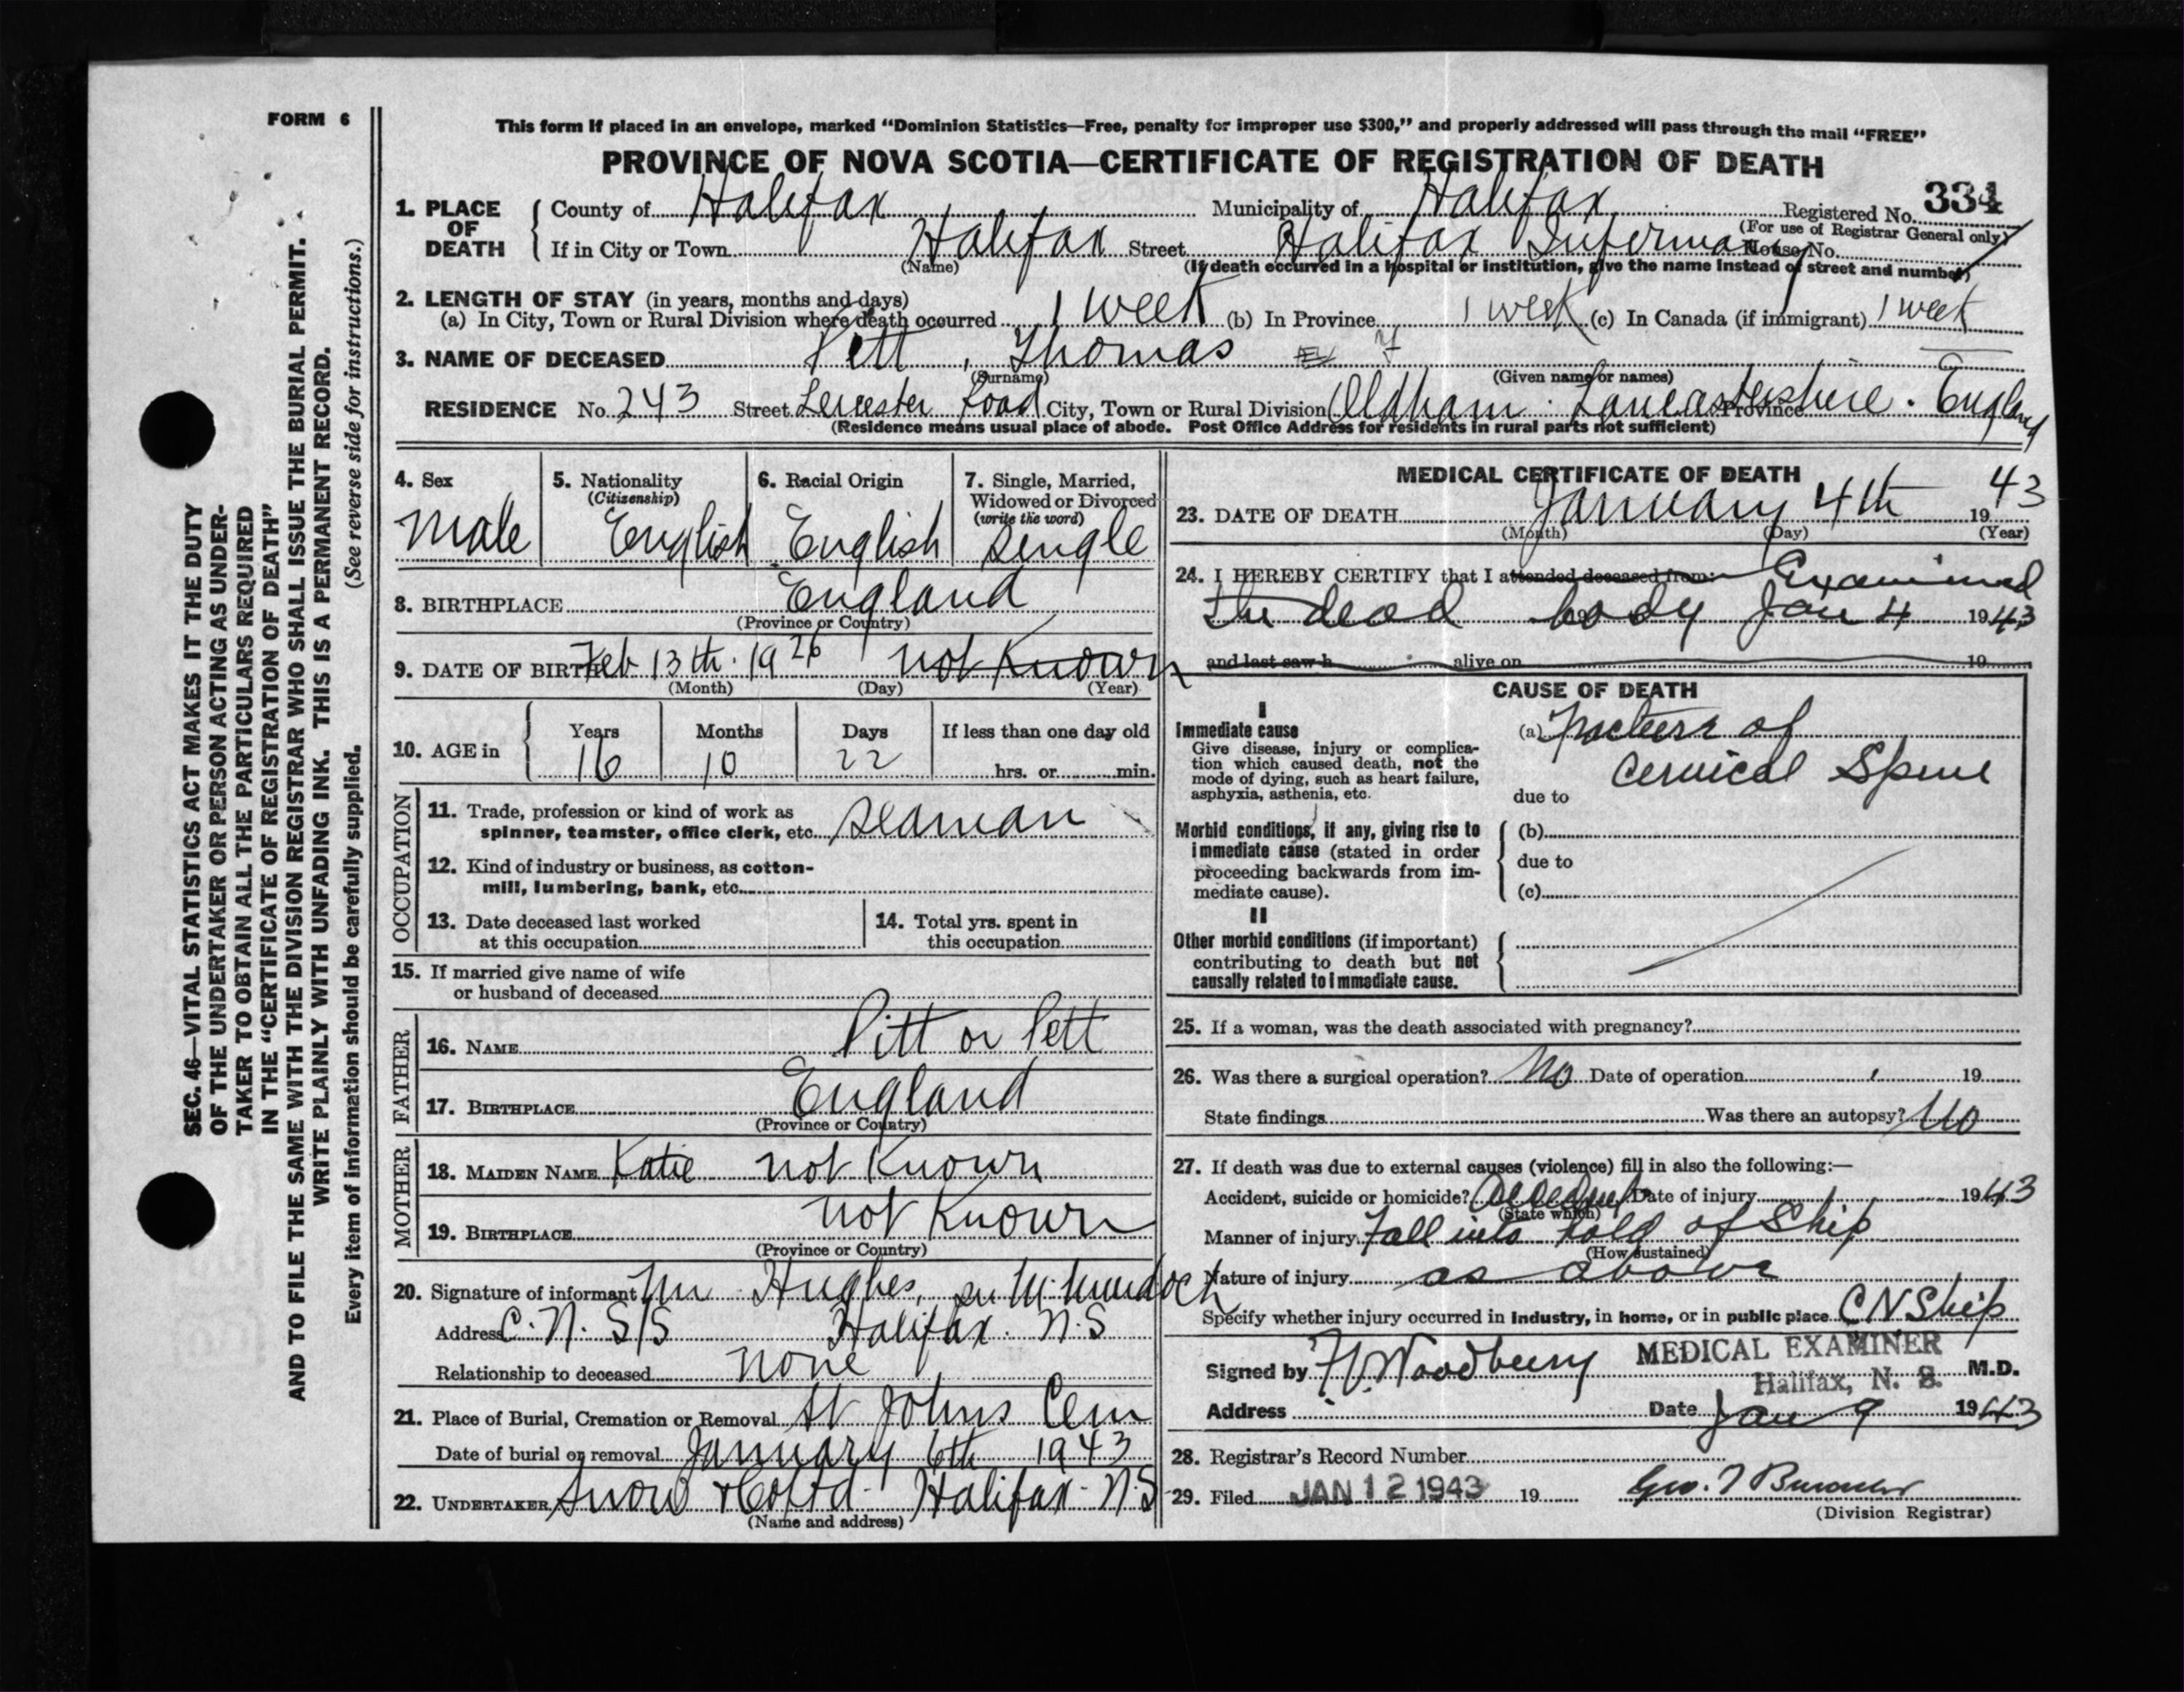 FORM 6
This form if placed in an envelope, marked “Dominion Statistics—Free, penalty for improper use $300,” and properly addressed will pass through the mail “FREE”
PROVINCE OF NOVA SCOTIA—CERTIFICATE OF REGISTRATION OF DEATH
1. PLACE OF DEATH County of Halifax Municipality of Halifax Registered No. 334
(For use of Registrar General only)
If in City or Town Halifax Street Halifax Infirmary House No.
(Name) (If death occurred in a hospital or institution, give the name instead of street and number)
2. LENGTH OF STAY (in years, months and days)
(a) In City, Town or Rural Division where death occurred 1 week (b) In Province 1 week (c) In Canada (if immigrant) 1 week
3. NAME OF DECEASED Pett, Thomas
(Surname) (Given name or names)
RESIDENCE No. 243 Street Leicester Road City, Town or Rural Division Oldham. Lancastershire. England
Province
(Residence means usual place of abode. Post Office Address for residents in rural parts not sufficient)
4. Sex
Male
5. Nationality
(Citizenship)
English
6. Racial Origin
English
7. Single, Married,
Widowed or Divorced
(write the word)
single
8. BIRTHPLACE England
(Province or Country)
9. DATE OF BIRTH Feb 13th. 1926 not Known
(Month) (Day) (Year)
10. AGE in
Years Months Days If less than one day old
16 10 22 hrs. or min.
OCCUPATION
11. Trade, profession or kind of work as
spinner, teamster, office clerk, etc. seaman
12. Kind of industry or business, as cotton-
mill, lumbering, bank, etc.
13. Date deceased last worked
at this occupation
14. Total yrs. spent in
this occupation
15. If married give name of wife
or husband of deceased
FATHER
16. NAME Pitt or Pett
17. BIRTHPLACE England
(Province or Country)
MOTHER
18. MAIDEN NAME Katie not Known
19. BIRTHPLACE not Known
(Province or Country)
20. Signature of informant Mr Hughes, M. Murdoch
Address C. N. S/S Halifax. N.S
Relationship to deceased none
21. Place of Burial, Cremation or Removal St Johns Cem
Date of burial or removal January 6th 1943
22. UNDERTAKER Snow & Co Ltd. Halifax. N.S
(Name and address)
MEDICAL CERTIFICATE OF DEATH
23. DATE OF DEATH January 4th 1943
(Month) (Day) (Year)
24. I HEREBY CERTIFY that I attended deceased from: Examined
the dead body Jan 4 1943
and last saw h alive on 19
CAUSE OF DEATH
I
Immediate cause
Give disease, injury or complica-
tion which caused death, not the
mode of dying, such as heart failure,
asphyxia, asthenia, etc.
(a) Fracture of
Cervical Spine
due to
Morbid conditions, if any, giving rise to
immediate cause (stated in order
proceeding backwards from im-
mediate cause).
(b)
due to
(c)
II
Other morbid conditions (if important)
contributing to death but not
causally related to immediate cause.
25. If a woman, was the death associated with pregnancy?
26. Was there a surgical operation? No Date of operation 19
State findings Was there an autopsy? No
27. If death was due to external causes (violence) fill in also the following:—
Accident, suicide or homicide? Accident Date of injury 1943
(State which)
Manner of injury Fall into hold of Ship
(How sustained)
Nature of injury as above
Specify whether injury occurred in Industry, in home, or in public place CN Ship
Signed by Woodbury MEDICAL EXAMINER M.D.
Halifax, N. S.
Address Date Jan 9 1943
28. Registrar's Record Number
29. Filed JAN 12 1943 19
(Division Registrar)
SEC. 46—VITAL STATISTICS ACT MAKES IT THE DUTY
OF THE UNDERTAKER OR PERSON ACTING AS UNDER-
TAKER TO OBTAIN ALL THE PARTICULARS REQUIRED
IN THE “CERTIFICATE OF REGISTRATION OF DEATH”
AND TO FILE THE SAME WITH THE DIVISION REGISTRAR WHO SHALL ISSUE THE BURIAL PERMIT.
WRITE PLAINLY WITH UNFADING INK. THIS IS A PERMANENT RECORD.
Every item of information should be carefully supplied. (See reverse side for instructions.)